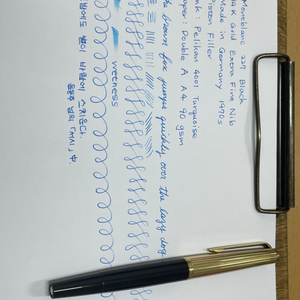 Montblanc 227 Black
14k Gold Extra Fine Nib
Made in Germany 1970s
Piston Filler
Ink: Pelikan 4001 Turquoise
Paper: Double A A4 90 gsm
The brown fox jumps quickly over the lazy dog
wetness
별이 바람에 스치운다